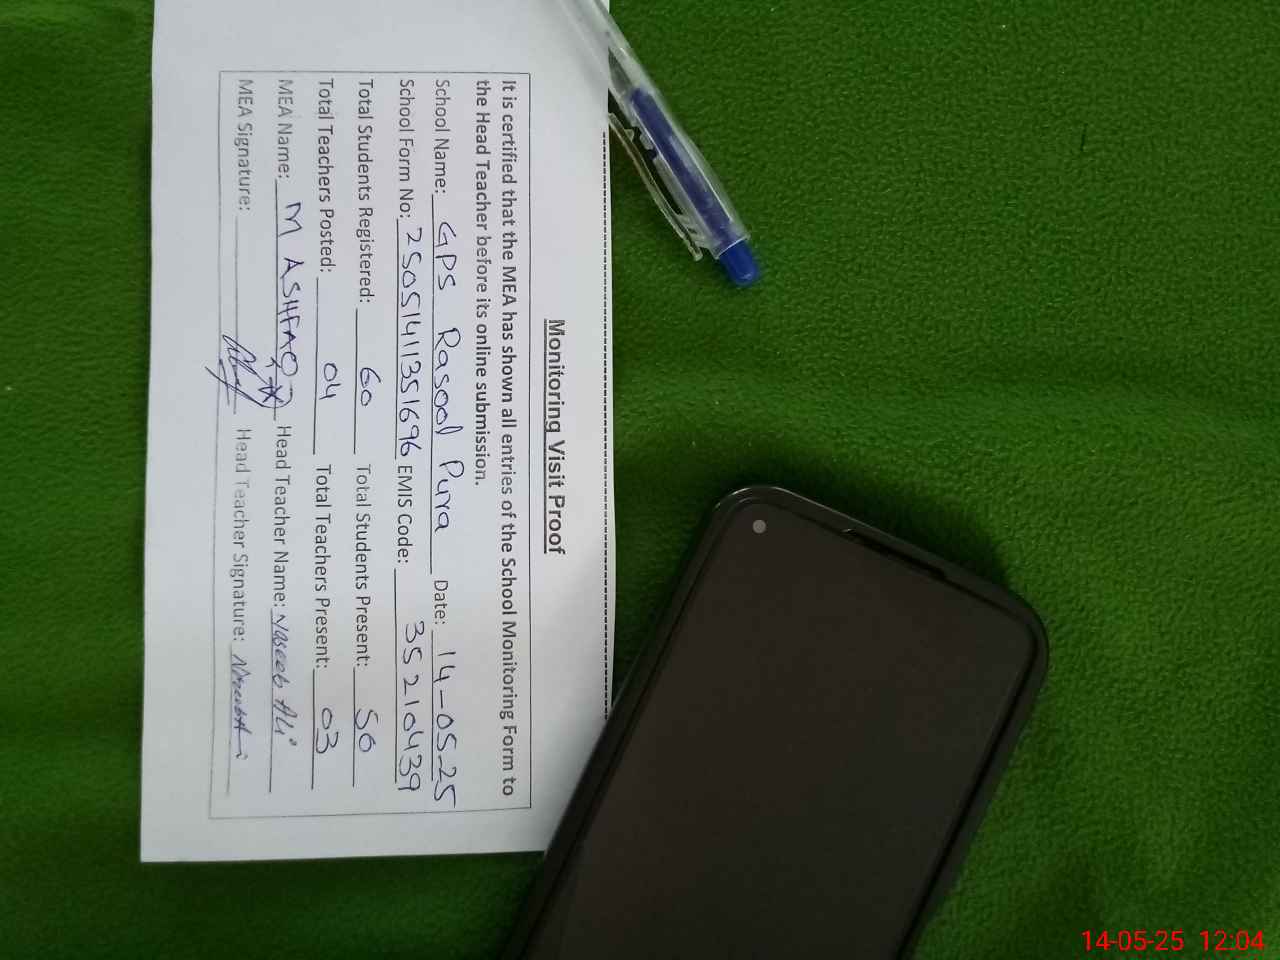 Monitoring Visit Proof
It is certified that the MEA has shown all entries of the School Monitoring Form to
the Head Teacher before its online submission.
School Name: GPS Rasool Pura Date: 14-05-25
School Form No: 25051411351696 EMIS Code: 35210439
Total Students Registered: 60 Total Students Present: 50
Total Teachers Posted: 04 Total Teachers Present: 03
MEA Name: M ASHFAQ Head Teacher Name: Naseeb Ali
MEA Signature: Head Teacher Signature:
14-05-25 12:04